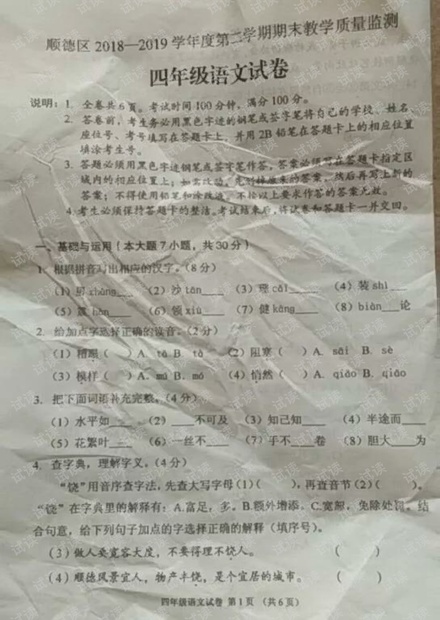 顺德区 2018—2019 学年度第二学期期末教学质量监测
四年级语文试卷
说明：1. 全卷共6页。考试时间100分钟，满分100分。
2. 答卷前，考生务必用黑色字迹的钢笔或签字笔将自己的学校、姓名、
座位号、考号填写在答题卡上，并用2B铅笔在答题卡上的相应位置
填涂考生号。
3. 答题必须用黑色字迹钢笔或签字笔作答，答案必须写在答题卡指定区
域内的相应位置上；如需改动，先划掉原来的答案，然后再写上新的
答案；不得使用铅笔和涂改液。不按以上要求作答的答案无效。
4. 考生必须保持答题卡的整洁。考试结束后，将试卷和答题卡一并交回。
一、基础与运用（本大题7小题，共30分）
1. 根据拼音写出相应的汉字。（8分）
（1）chuāng （2）沙 tān （3）理 cǎi （4）装 shì
（5）hàn （6）领 xiù （7）健 kāng （8）biàn 论
2. 给加点字选择正确的读音。（2分）
（1）蹋（ ）A. tā B. tà （2）阻塞（ ）A. sāi B. sè
（3）模样（ ）A. mú B. mó （4）悄然（ ）A. qiǎo B. qiāo
3. 把下面词语补充完整。（4分）
（1）水平如 （2） 不可及 （3）知己知 （4）半途而
（5）花繁叶 （6）一丝不 （7）手不 卷 （8）胆大 为
4. 查字典，理解字义。（4分）
“饶”用音序查字法，先查大写字母（1）（ ），再查音节（2）（ ）。
“饶”在字典里的解释有：A.富足；多。B.额外增添。C.宽解，免除处罚。结
合句意，给下列句子加点的字选择正确的解释（填序号）。
（3）做人要宽容大度，不要得理不饶人。 （ ）
（4）顺德风景宜人，物产丰饶，是个宜居的城市。 （ ）
四年级语文试卷 第1页 （共6页）